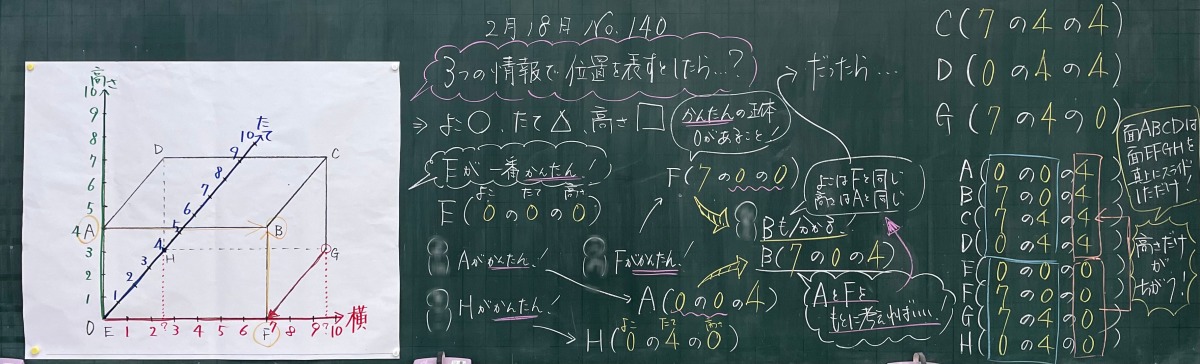 高さ
10
9
8
7
6
5
4
3
2
1
0
たて
10
9
8
7
6
5
4
3
2
1
D
C
A
B
H
G
E
F
1 2 ? 3 4 5 6 7 8 9 ? 10
横
2月18日 No.140
3つの情報で位置を表すとしたら…?
⇒ よこ○、たて△、高さ□
かんたんの正体
0があること!
Eが一番かんたん!
よこ たて 高さ
E(0の0の0)
Aがかんたん!
Hがかんたん!
Fがかんたん!
F(7の0の0)
A(0の0の4)
よこ たて 高さ
H(0の4の0)
→だったら…
よこはFと同じ
高さはAと同じ
Bも分かる!
B(7の0の4)
AとFを
もとに考えればいい!
C(7の4の4)
D(0の4の4)
G(7の4の0)
A(0の0の4)
B(7の0の4)
C(7の4の4)
D(0の4の4)
E(0の0の0)
F(7の0の0)
G(7の4の0)
H(0の4の0)
面ABCDは
面EFGHを
真上にスライド
しただけ!
高さだけ
が
ちがう!